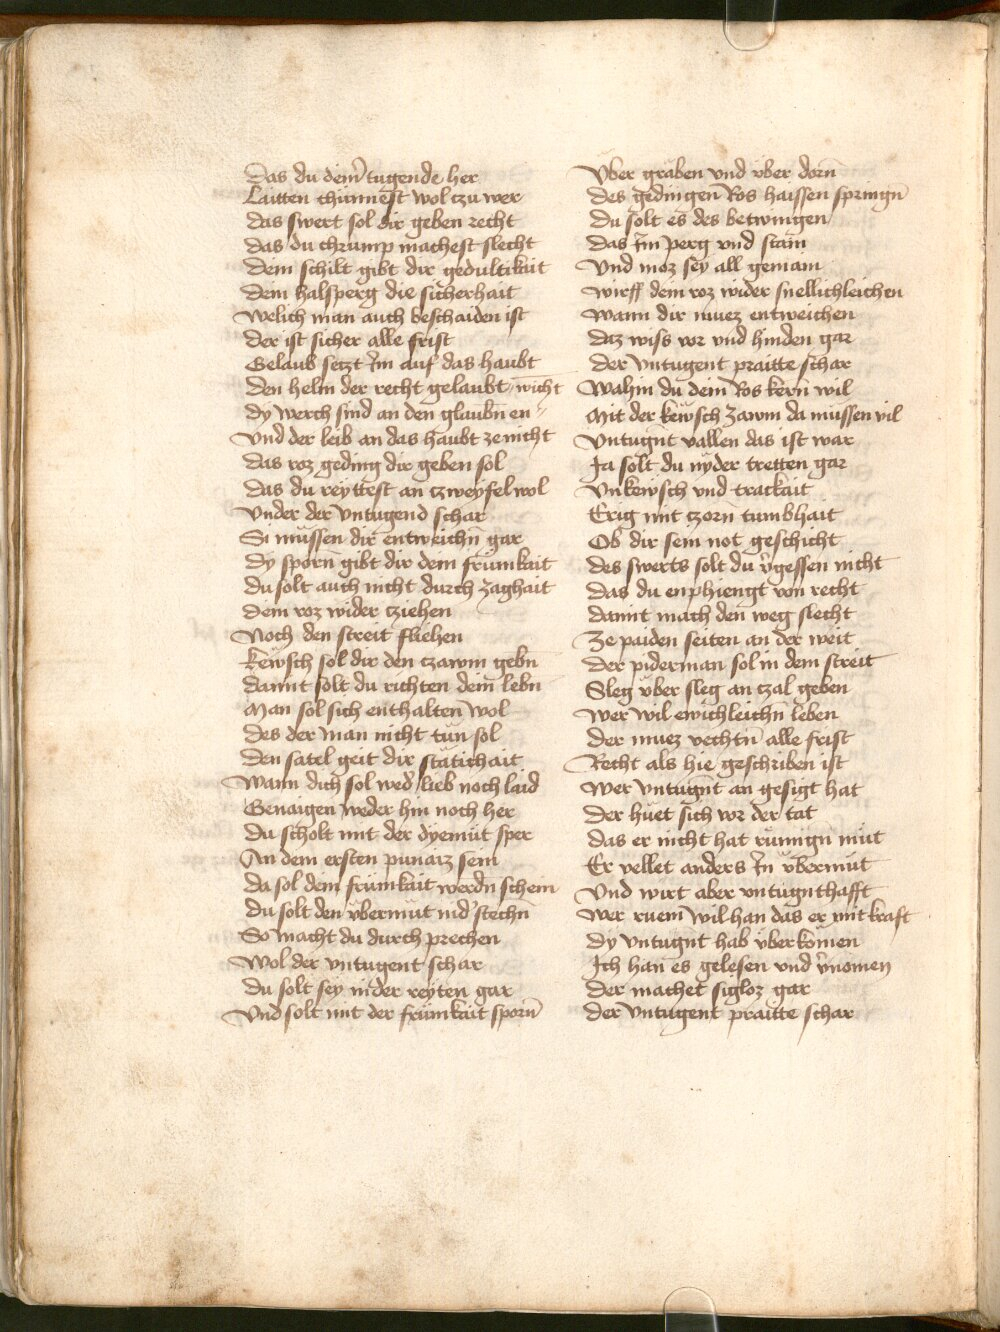 Das du deim̄ tugende her
Laitten chunnest wol czu wer
das swert sol dir geben recht
das du chrump machest slecht
dein schilt gibt dir gedultikait
dein halsperg die sicherhait
welich man auch beschaiden ist
der ist sicher alle frist
Gelaub setzt Im auf das haubt
den helm der recht gelaubt
dy werch sind an den glaubn̄ en- wicht
Vnd der leib an das haubt ze nicht
das roz geding dir geben sol
das du reyttest an czweyfel wol
Vnder der vntugend schar
Si müssen dir entweichn̄ gar
dy sporn̄ gibt dir dein frümkait
du solt auch nicht durch zaghait
dem roz wider cziehen
Noch den streit fliehen
kewsch sol dir den czawm gebn̄
damit solt du richten dein lebn̄
Man sol sich enthalten wol
des der man nicht tün sol
den satel geit dir stätichait
Wann dich sol wed' lieb noch laid
Genaigen weder hin noch her
du scholt mit der dyemüt sper
An dem ersten punaiz sein
da sol dein frümkait werdn̄ schein
du solt den vbermüt nid' stechn̄
So macht du durch prechen
wol der vntugent schar
du solt sey nider reyten gar
Vnd solt mit der frümkait sporn̄
Vber graben vnd vber dorn̄
des gedingen Ros haissen springn̄
du solt es des betwingen
das Im perg vnd stain
Vnd moz sey all gemain
wirff dein roz wider snellichleichen
wann dir muez entweichen
daz wiss vor vnd hinden gar
der vntugent praitte schar
wahin du dein Ros kern̄ wil
Mit der kewsch zawm da müssen vil
Vntugnt vallen das ist war
Ja solt du nyder tretten gar
Vnkewsch vnd trackait
Erig mit czorn̄ tumbhait
Ob dir sein not geschicht
des swerts solt du v̄gessen nicht
das du enphiengt von recht
damit mach den weg slecht
Ze paiden seiten an der weit
der piderman sol in dem streit
Sleg vber sleg an czal geben
wer wil ewichleichn̄ leben
der muez vechtn̄ alle frist
Recht als hie geschriben ist
wer vntugnt an gesigt hat
der hüet sich vor der tat
das er nicht hat rümign müt
Er vellet anders In vbermüt
Vnd wirt aber vntugnthafft
wer ruem wil han das er mit kraft
dy vntugnt hab vberkomen
Ich han es gelesen vnd v̄nomen
der machet sigloz gar
der vntugent praitte schar